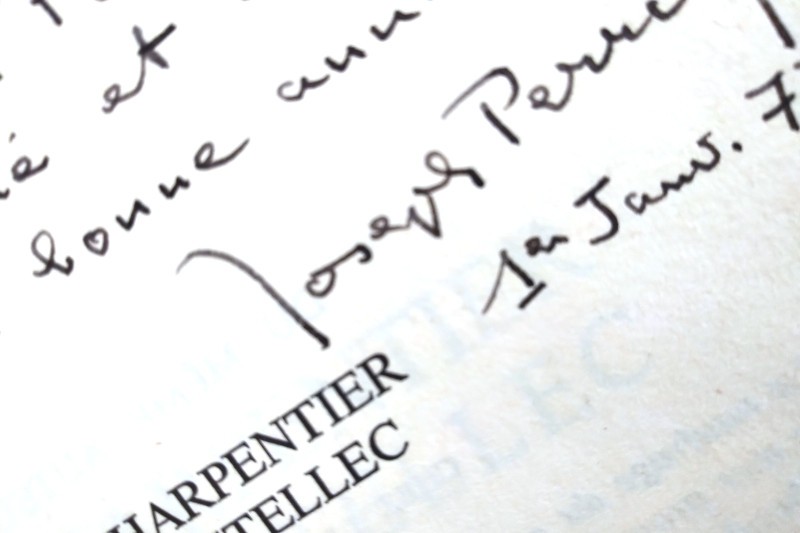 et
bonne ann
Joseph Perr
1er Janv. 7
HARPENTIER
TELLEC